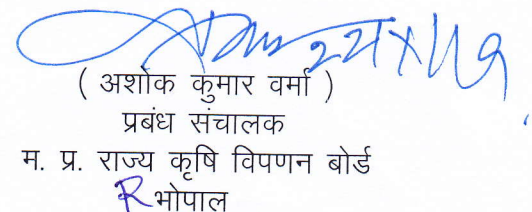 ( अशोक कुमार वर्मा )
प्रबंध संचालक
म. प्र. राज्य कृषि विपणन बोर्ड
भोपाल